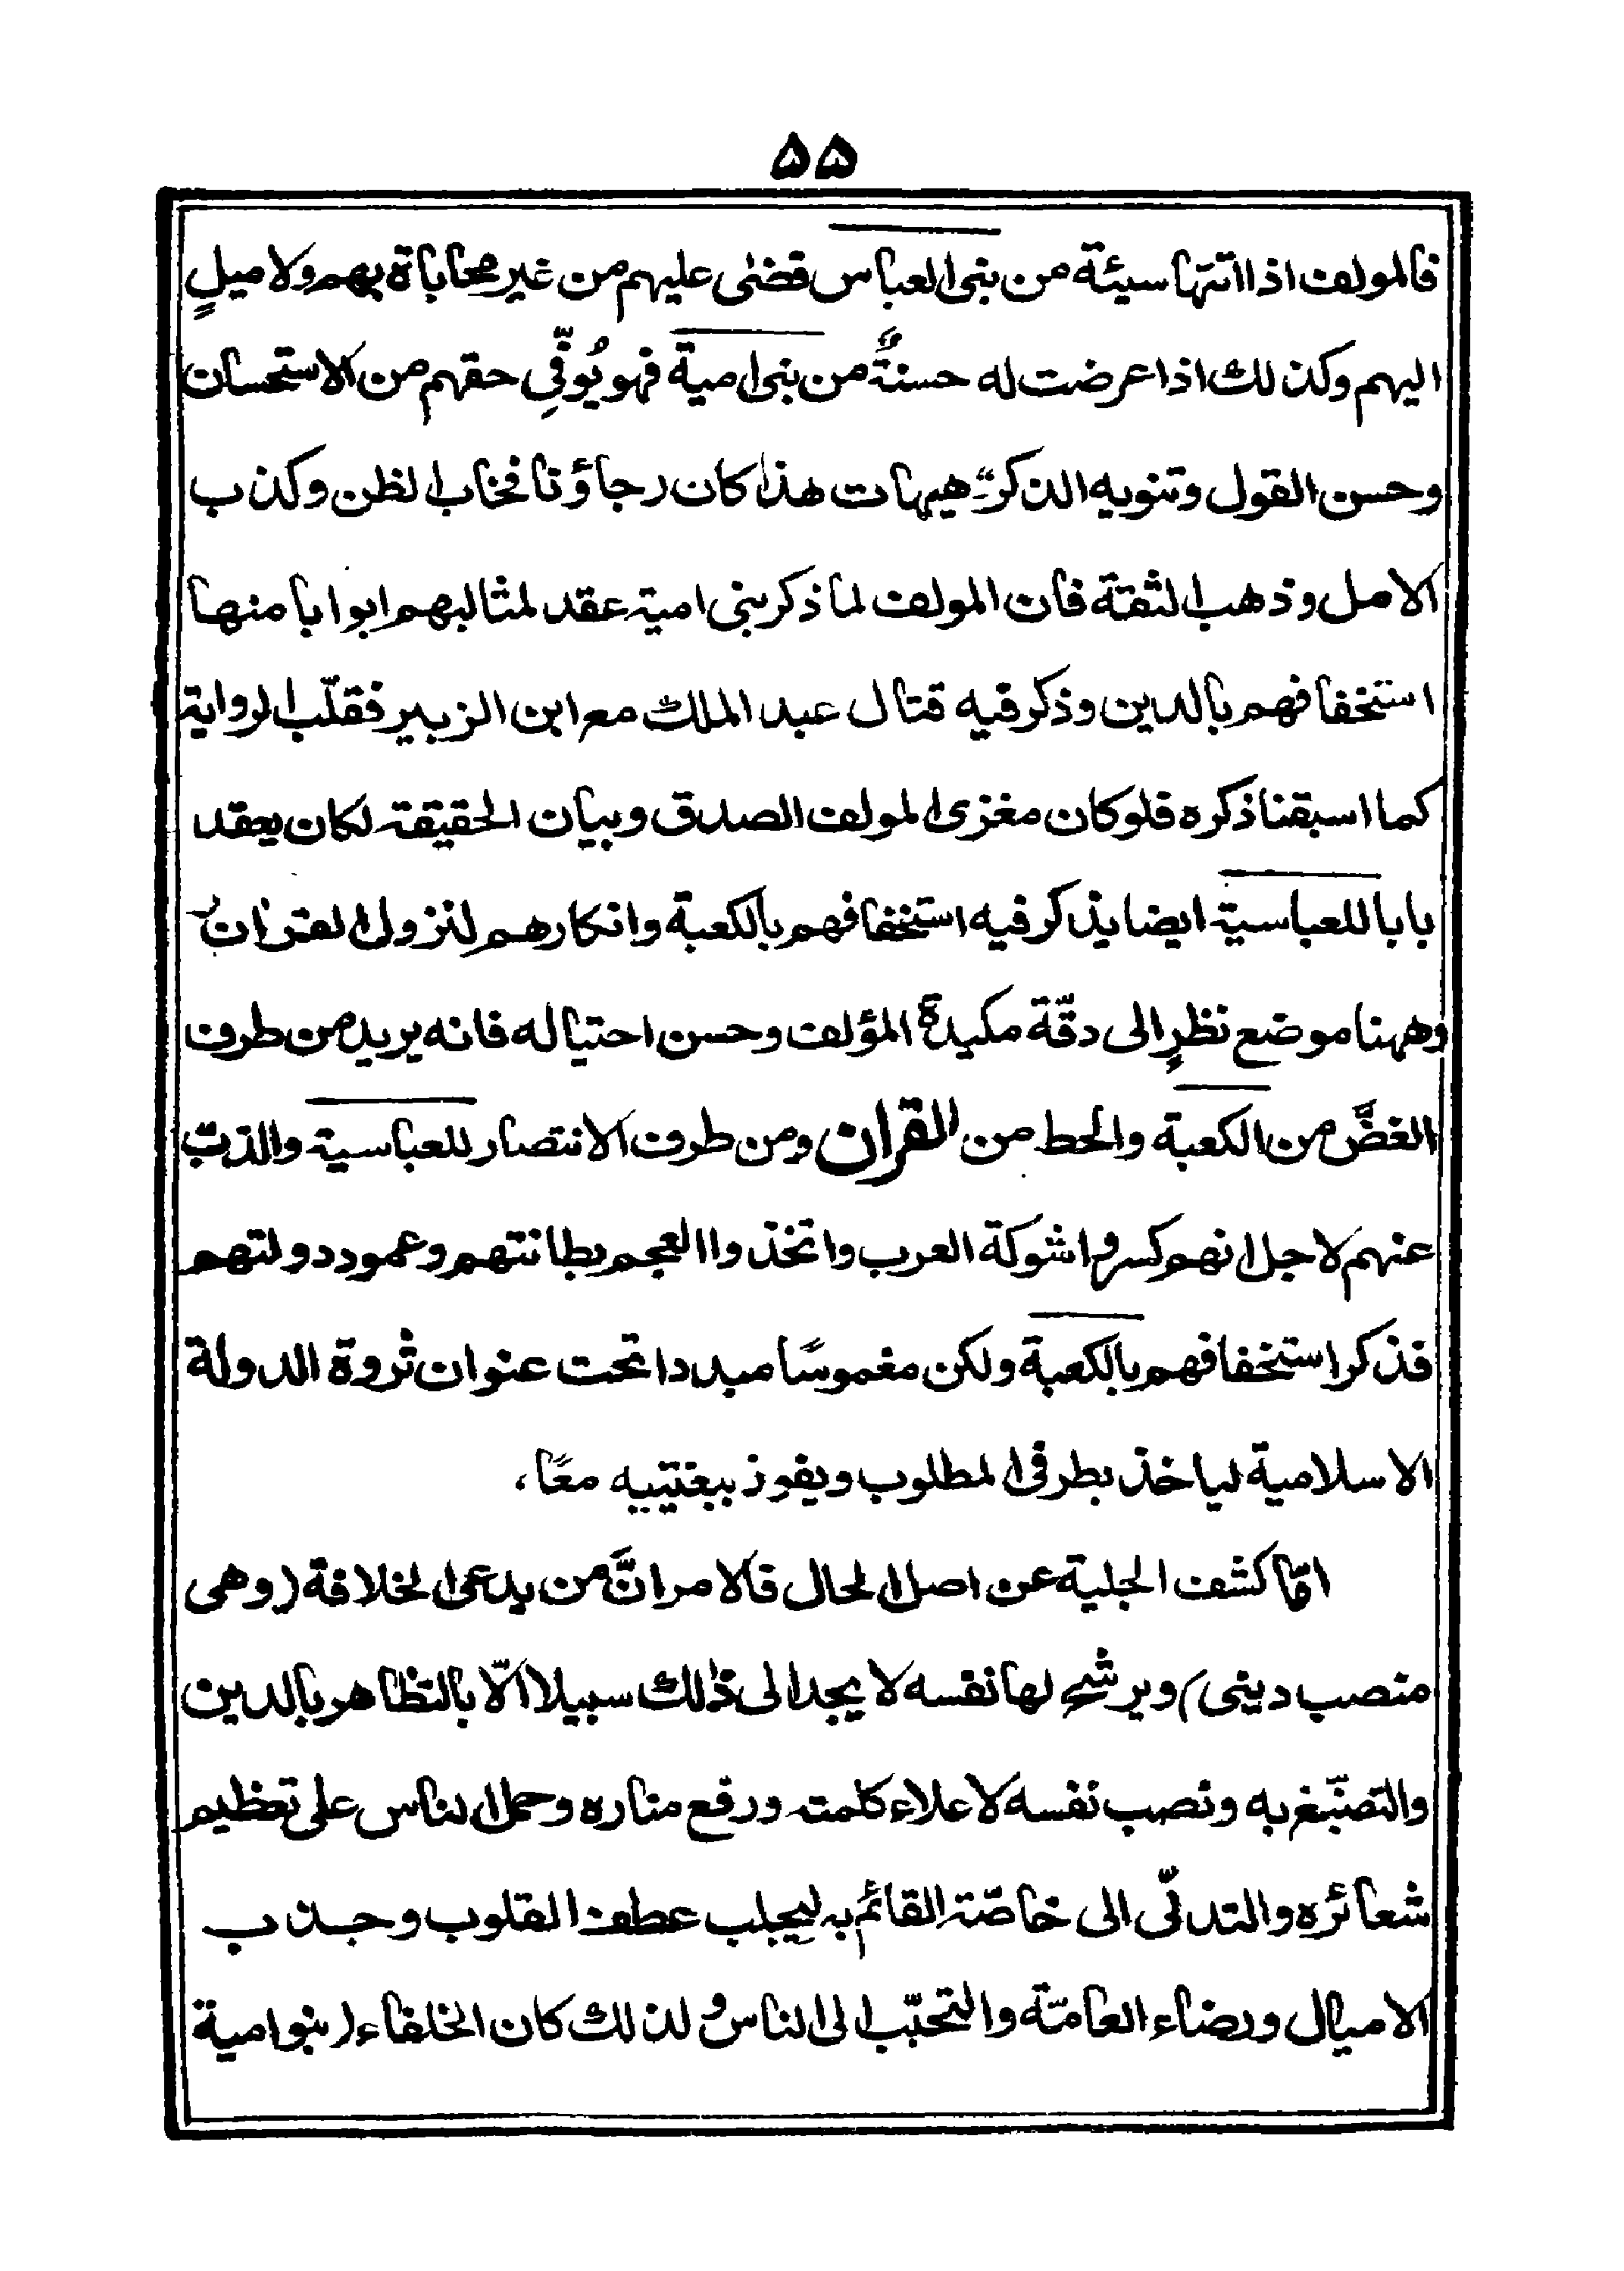 ۵۵
فالمولف اذا اتتها سيئة من بنى العباس قضٰى عليهم من غير محاباة بهم ولا ميلٍ
اليهم وكذلك اذا عرضت له حسنةٌ من بنى امية فهو يُوفّي حقهم من الاستحسان
وحسن القول وتنويه الذكر۔ هيهات هذا كان رجاؤنا فخاب الظن وكذب
الامل وذهب الثقة فان المولف لما ذكر بنى امية عقد لمثالبهم ابوابا منها
استخفافهم بالدين وذكر فيه قتال عبد الملك مع ابن الزبير فقلّب الرواية
كما اسبقنا ذكره فلو كان مغزى المولف الصدق وبيان الحقيقة لكان يعقد
بابا للعباسية ايضا يذكر فيه استخفافهم بالكعبة وانكارهم لنزول القران۔
وههنا موضع نظرٍ الى دقّة مكيدة المؤلف وحسن احتياله فانه يريد من طرف
الغضَّ من الكعبة والحط من القران ومن طرف الانتصار للعباسية والذبّ
عنهم لاجل انهم كسروا شوكة العرب واتخذوا العجم بطانتهم وعمود دولتهم
فذكر استخفافهم بالكعبة ولكن مغموسًا مبددا تحت عنوان ثروة الدولة
الاسلامية لياخذ بطرفى المطلوب ويفوز ببغتييه معًا،
امّا كشف الجلية عن اصل الحال فالامر انَّ من يدعى الخلافة (وهى
منصب دينى) ويرشح لها نفسه لا يجد الى ذٰلك سبيلا الّا بالتظاهر بالدين
والتصبّغ به ونصب نفسه لاعلاء كلمته ورفع مناره وحمل الناس على تعظيم
شعائره والتدلّى الى خاصّة القائم به ليجلب عطف القلوب وجذب
الاميال ورضاء العامّة والتحبّب الى الناس ولذلك كان الخلفاء (بنو امية